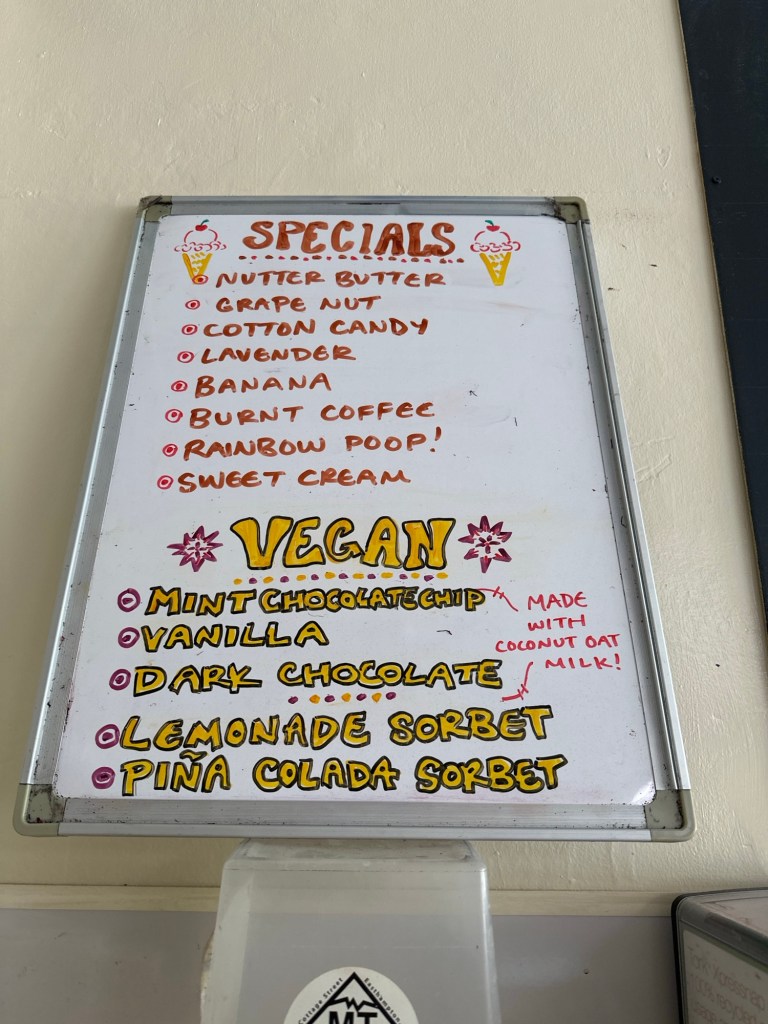 SPECIALS
NUTTER BUTTER
GRAPE NUT
COTTON CANDY
LAVENDER
BANANA
BURNT COFFEE
RAINBOW POOP!
SWEET CREAM
VEGAN
MINT CHOCOLATE CHIP
VANILLA
DARK CHOCOLATE
MADE
WITH
COCONUT OAT
MILK!
LEMONADE SORBET
PIÑA COLADA SORBET
Cottage Street
Easthampton
MT